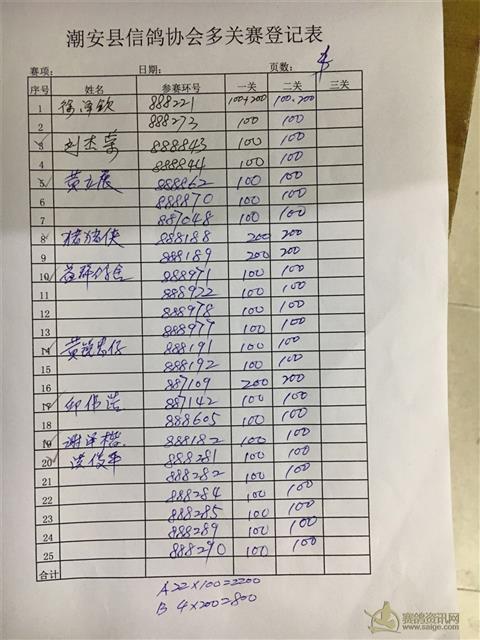 潮安县信鸽协会多关赛登记表
赛项： 日期： 页数：
序号 姓名 参赛环号 一关 二关 三关
1 888221 100+200 100+200
2 888273 100 100
3 刘杰 888843 100 100
4 888844 100 100
5 黄 888862 100 100
6 888870 100 100
7 887048 100 100
8 猪猪侠 888188 200 200
9 888189 200 200
10 益群鸽舍 888971 100 100
11 888972 100 100
12 888978 100 100
13 888977 100 100
14 黄 888191 100 100
15 888192 100 100
16 887109 200 200
17 伟 887142 100 100
18 888605 100 100
19 谢泽楷 888182 100 100
20 洪俊平 888281 100 100
21 888282 100 100
22 888284 100 100
23 888285 100 100
24 888289 100 100
25 888290 100 100
合计
A 22×100=2200
B 4×200=800
赛鸽资讯网
www.saige.com